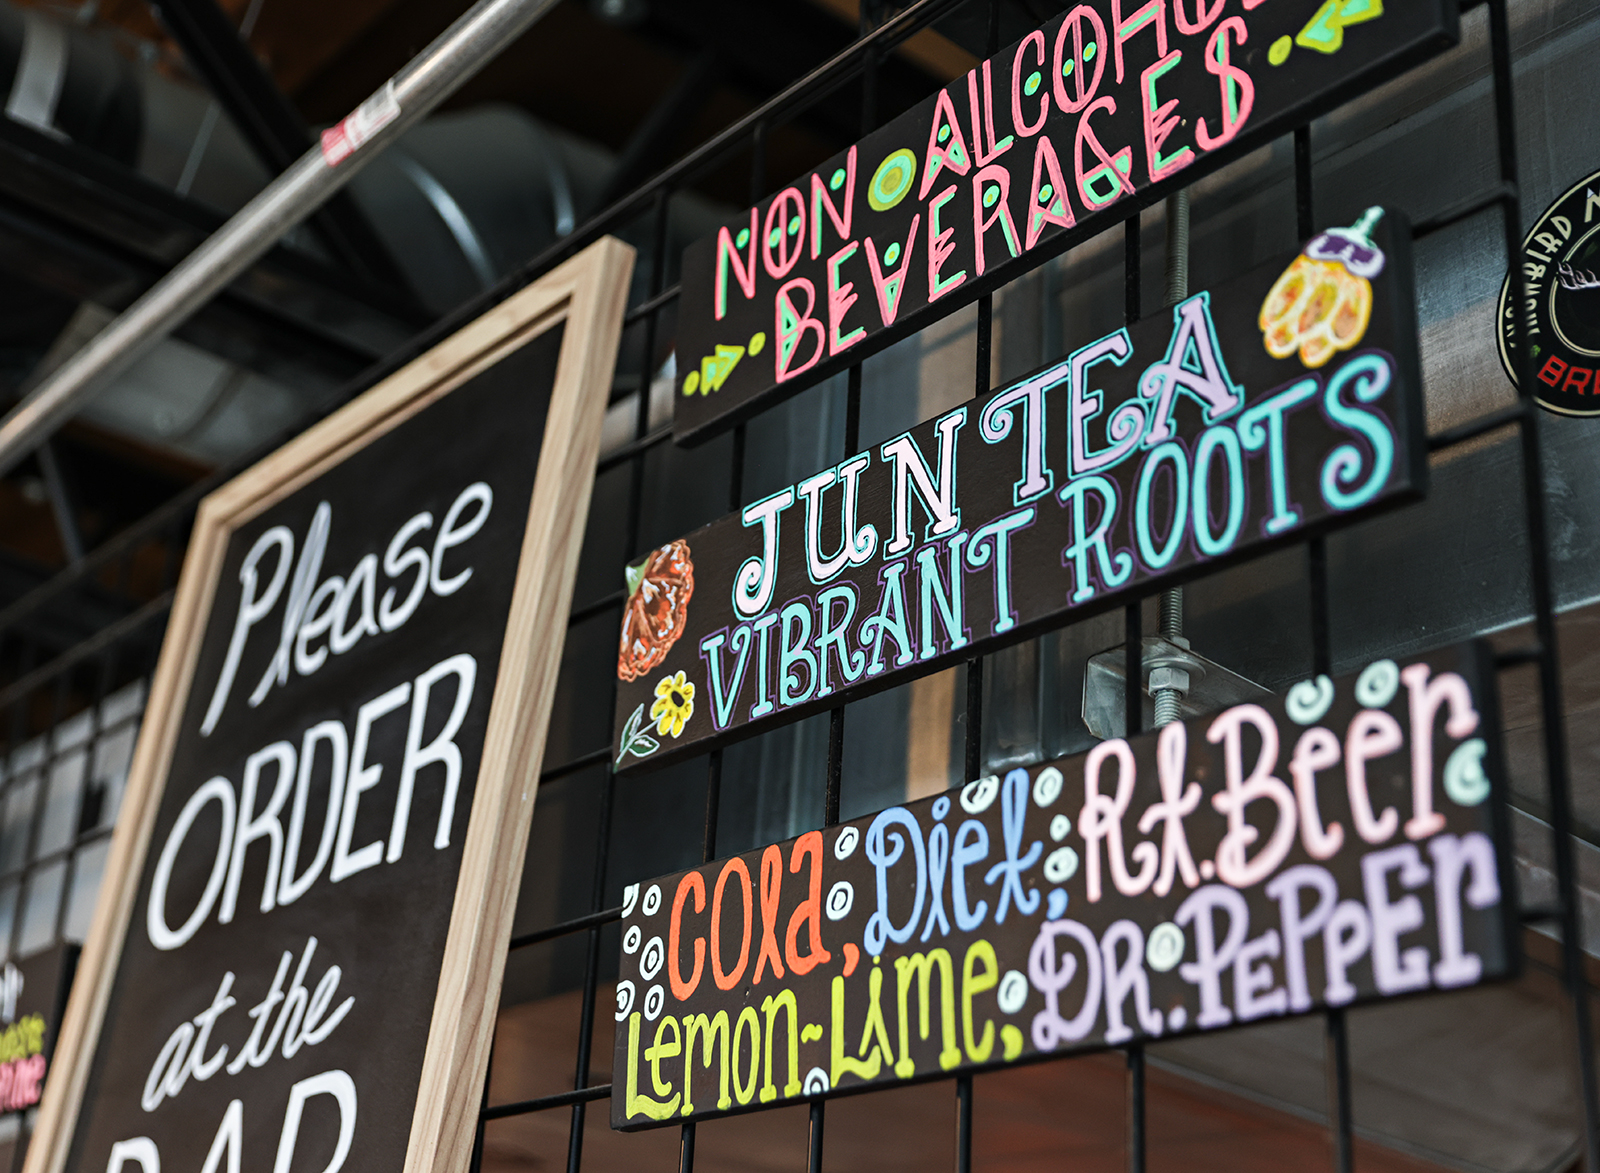 Please
ORDER
at the
BAR
NON ALCOHOL
BEVERAGES
JUN TEA
VIBRANT ROOTS
Cola, Diet, Rt. Beer
Lemon-Lime, DR. PEPPEr